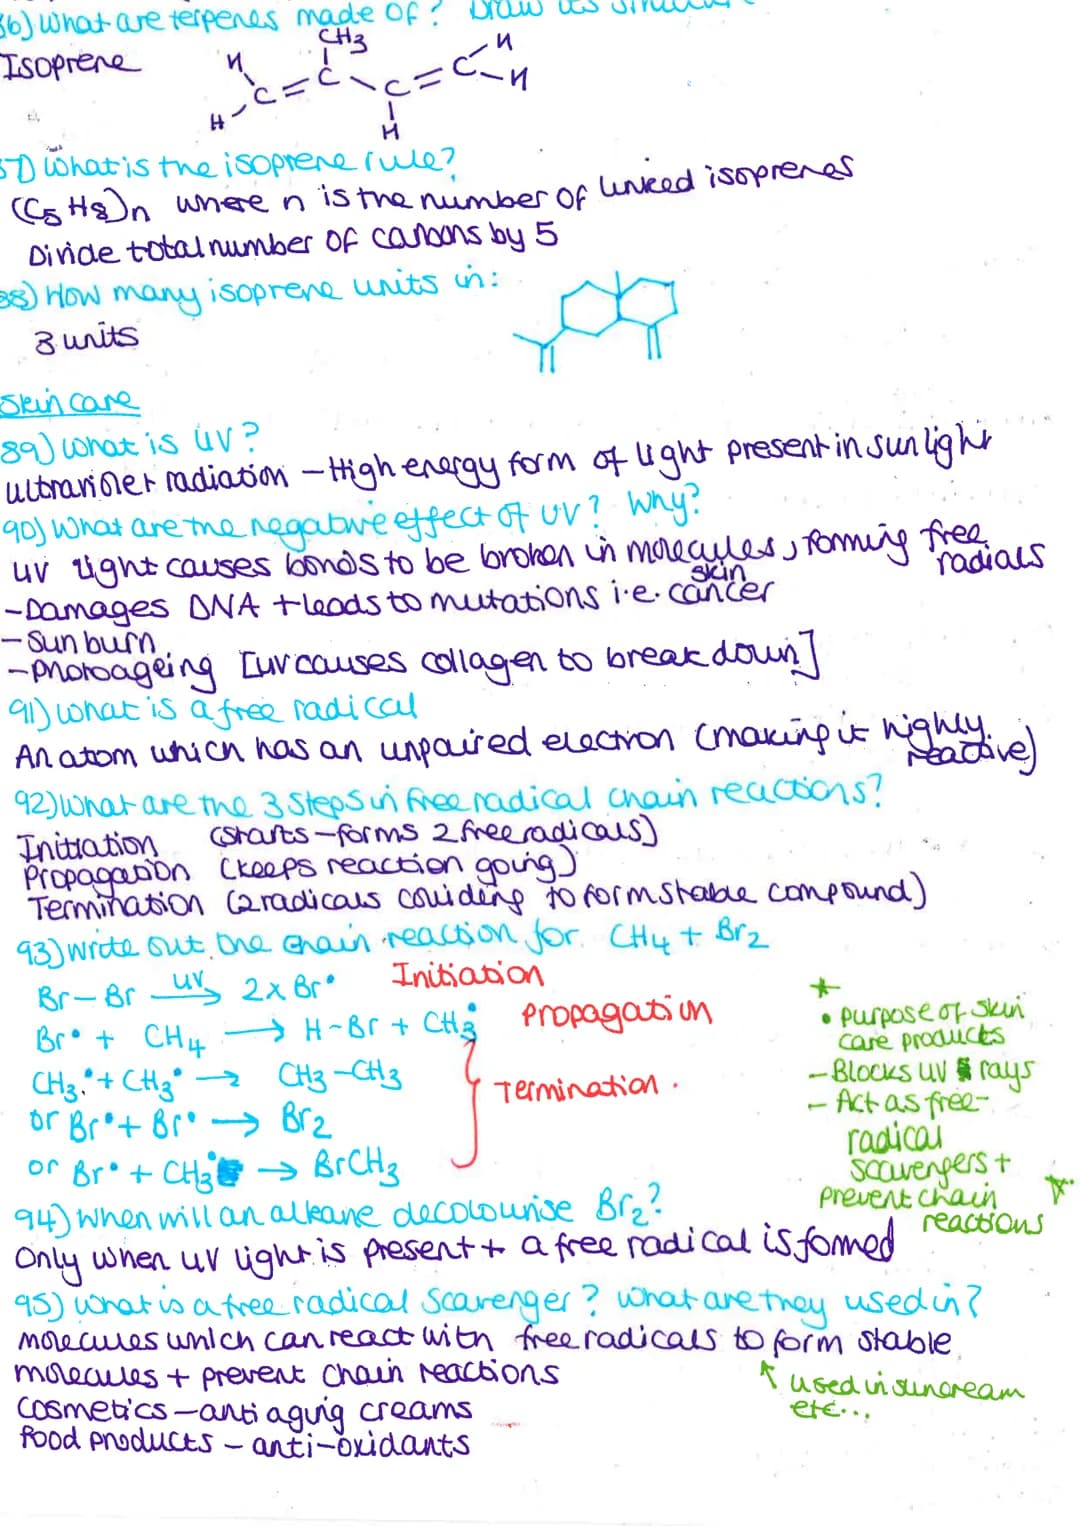 36) What are terpenes made of? Draw its
Isoprene
H H C = C CH3 C H = C H H
37) What is the isoprene rule?
(C5H8)n where n is the number of linked isoprenes
Divide total number of carbons by 5
88) How many isoprene units in:
3 units
Skin care
89) What is UV?
ultraviolet radiation - High energy form of light present in sunlight
90) What are the negative effect of UV? Why?
UV light causes bonds to be broken in molecules, forming free radicals
- Damages DNA + leads to mutations i.e. skin cancer
- Sunburn
- Photoageing [UV causes collagen to break down]
91) What is a free radical
An atom which has an unpaired electron (making it highly reactive)
92) What are the 3 steps in free radical chain reactions?
Initiation (starts - forms 2 free radicals)
Propagation (keeps reaction going)
Termination (2 radicals colliding to form stable compound)
93) Write out the chain reaction for CH4 + Br2
Br-Br UV→ 2x Br• Initiation
Br• + CH4 → H-Br + CH3• Propagation
CH3• + CH3• → CH3-CH3
or Br• + Br• → Br2
or Br• + CH3• → BrCH3
Termination.
*
• purpose of skin
care products
- Blocks UV rays
- Act as free-
radical
scavengers +
prevent chain
reactions *
94) When will an alkane decolourise Br2?
Only when UV light is present + a free radical is formed
95) What is a free radical scavenger? What are they used in?
molecules which can react with free radicals to form stable
molecules + prevent chain reactions
↑ used in suncream
etc...
Cosmetics - anti aging creams
Food products - anti-oxidants